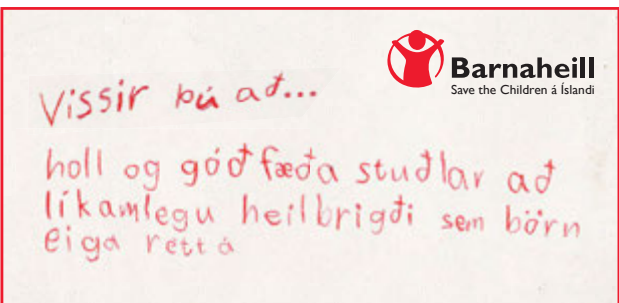 Barnaheill
Save the Children á Íslandi
Vissir þú að...
holl og góð fæða stuðlar að
líkamlegu heilbrigði sem börn
eiga rétt á